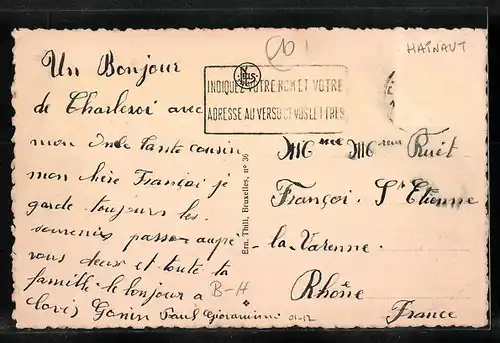 Un Bonjour
de Charleroi avec
mon Oncle Tante cousin
mon Père François je
garde toujours les
souvenirs passer aupré
vous deux et toute ta
famille le bonjour a
Gonin Paul Giovannini
INDIQUEZ VOTRE NOM ET VOTRE
ADRESSE AU VERSO DE VOS LETTRES
NELS
Ern. Thill, Bruxelles, nº 36
HAÏNAUT
Mme Msieur Ruit
Françoi. St Etienne
la Varenne.
Rhône
France
B-H
01-12